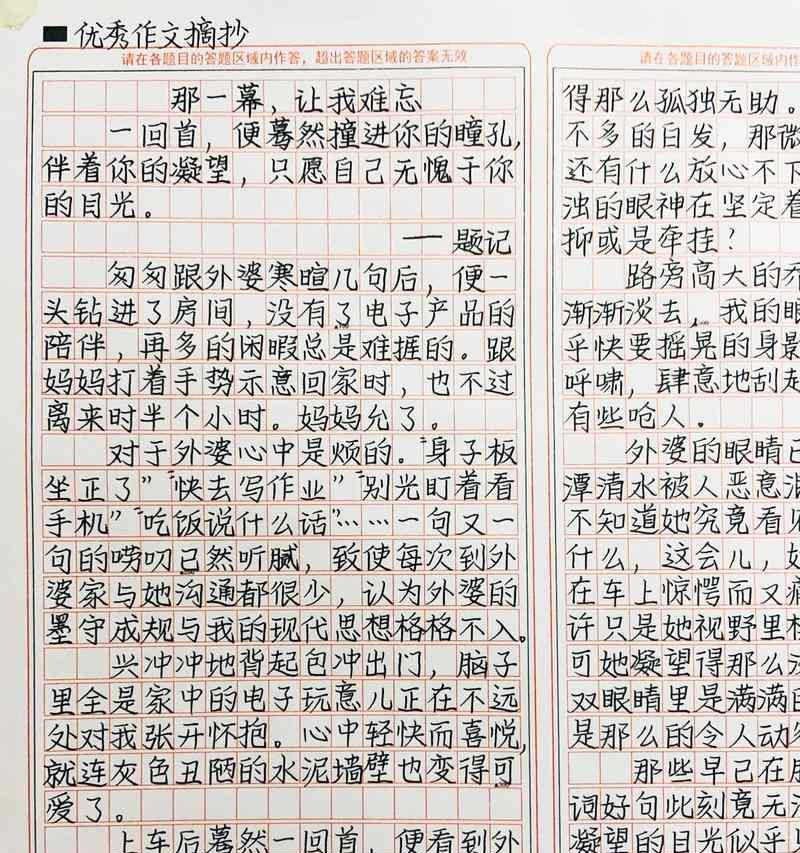 优秀作文摘抄
请在各题目的答题区域内作答，超出答题区域的答案无效
那一幕，让我难忘
一回首，便蓦然撞进你的瞳孔，
伴着你的凝望，只愿自己无愧于你
的目光。
——题记
匆匆跟外婆寒暄几句后，便一
头钻进了房间，没有了电子产品的
陪伴，再多的闲暇总是难捱的。跟
妈妈打着手势示意回家时，也不过
离来时半个小时。妈妈允了。
对于外婆心中是烦的。“身子板
坐正了”“快去写作业”“别光盯着看
手机”“吃饭说什么话”……一句又一
句的唠叨已然听腻，致使每次到外
婆家与她沟通都很少，认为外婆的
墨守成规与我的现代思想格格不入。
兴冲冲地背起包冲出门，脑子
里全是家中的电子玩意儿正在不远
处对我张开怀抱。心中轻快而喜悦，
就连灰色丑陋的水泥墙壁也变得可
爱了。
上车后蓦然一回首，便看到外
请在各题目的答题区域内作
得那么孤独无助。
不多的白发，那微
还有什么放心不下
浊的眼神在坚定着
抑或是牵挂？
路旁高大的乔
渐渐淡去，我的眼
乎快要摇晃的身影
呼啸，肆意地刮起
有些呛人。
外婆的眼睛已
潭清水被人恶意
不知道她究竟看见
什么，这会儿，
在车上惊愕而又
许只是她视野里
可她凝望得那么
双眼睛里是满满的
是那么的令人动
那些早已在
词好句此刻竟无
凝望的目光似乎